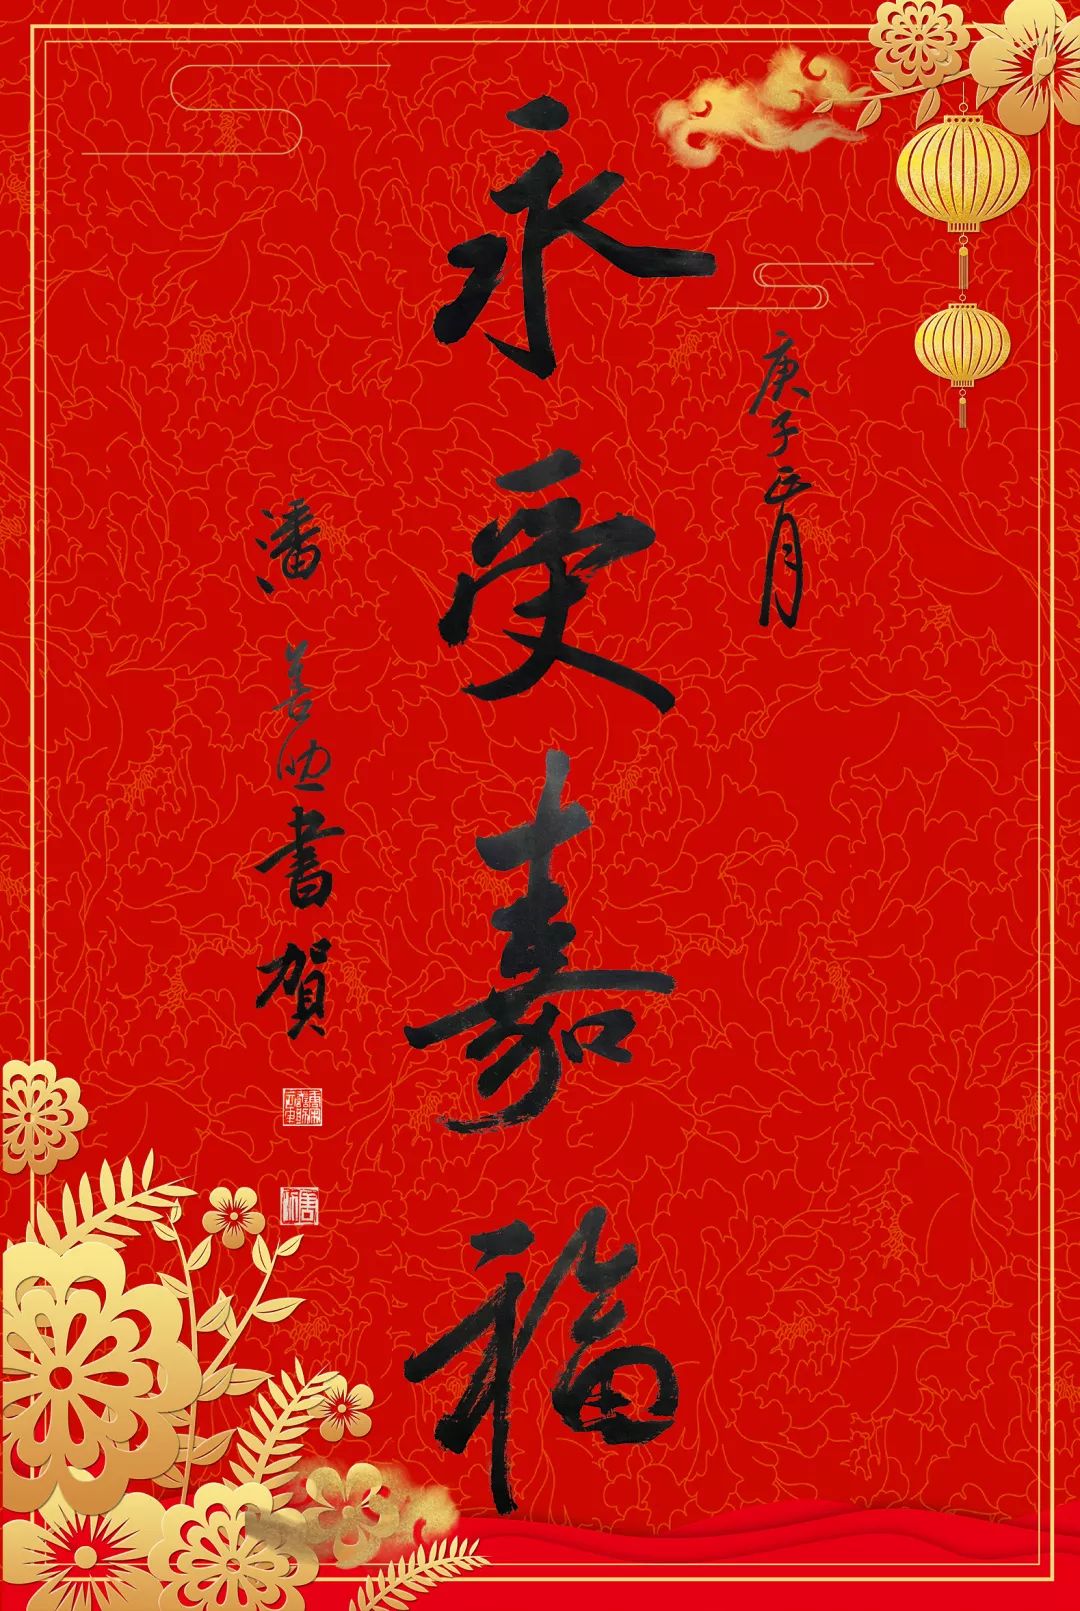 庚子正月
永受嘉福
潘善助書賀